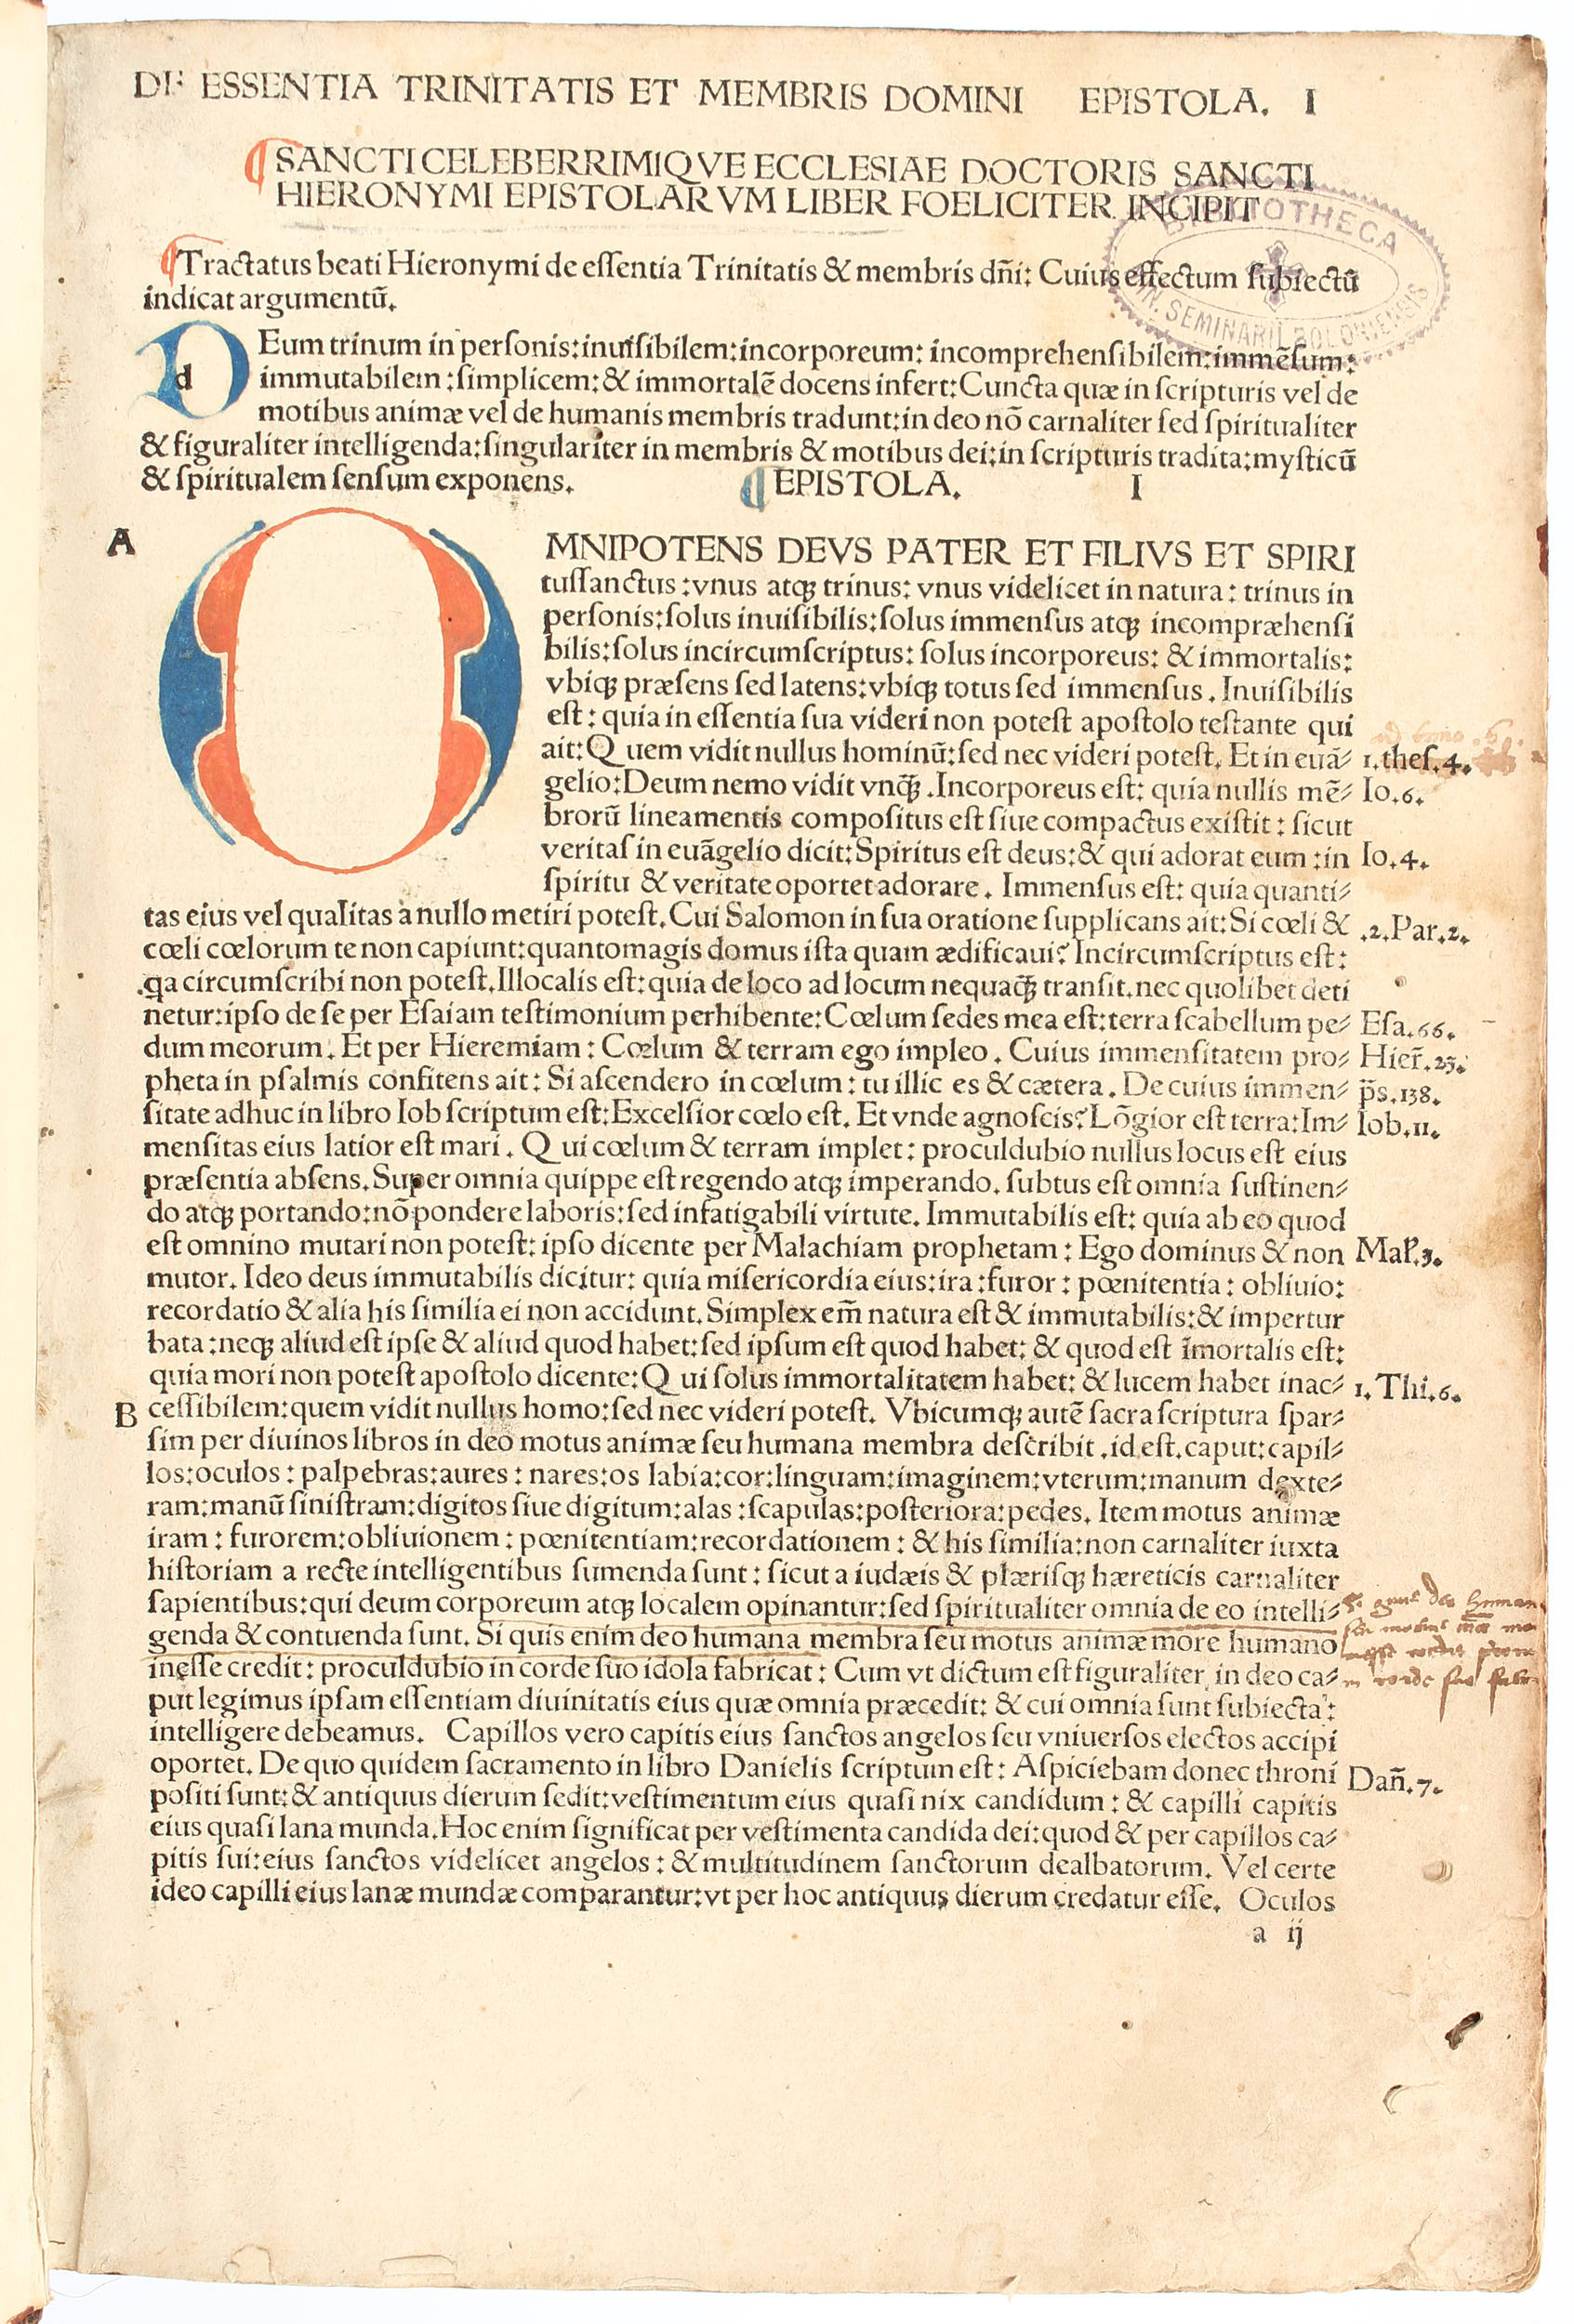 DE ESSENTIA TRINITATIS ET MEMBRIS DOMINI EPISTOLA. I
SANCTI CELEBERRIMIQVE ECCLESIAE DOCTORIS SANCTI
HIERONYMI EPISTOLARVM LIBER FOELICITER INCIPIT
BIBLIOTHECA
SEMINARII BOLONIENSIS
Tractatus beati Hieronymi de eſſentia Trinitatis & membris dñi: Cuius effectum ſubiectū
indicat argumentū.
d
DEum trinum in perſonis:inuiſibilem:incorporeum: incomprehenſibilem:immēſum:
immutabilem :ſimplicem:& immortalē docens infert:Cuncta quæ in ſcripturis vel de
motibus animæ vel de humanis membris tradunt:in deo nō carnaliter ſed ſpiritualiter
& figuraliter intelligenda:ſingulariter in membris & motibus dei:in ſcripturis tradita:myſticū
& ſpiritualem ſenſum exponens. EPISTOLA. I
A
OMNIPOTENS DEVS PATER ET FILIVS ET SPIRI
tuſſanctus :vnus atqꝫ trinus: vnus videlicet in natura: trinus in
perſonis:ſolus inuiſibilis:ſolus immenſus atqꝫ incompræhenſi
bilis:ſolus incircumſcriptus: ſolus incorporeus: & immortalis:
vbiqꝫ præſens ſed latens:vbiqꝫ totus ſed immenſus . Inuiſibilis
eſt : quia in eſſentia ſua videri non poteſt apoſtolo teſtante qui
ait:Quem vidit nullus hominū:ſed nec videri poteſt. Et in euā- 1.theſ.4.
gelio:Deum nemo vidit vnqꝫ̄ .Incorporeus eſt: quia nullis mē- Io.6.
brorū lineamentis compoſitus eſt ſiue compactus exiſtit : ſicut
veritaſ in euāgelio dicit:Spiritus eſt deus:& qui adorat eum :in Io.4.
ſpiritu & veritate oportet adorare . Immenſus eſt: quia quanti-
tas eius vel qualitas a nullo metiri poteſt.Cui Salomon in ſua oratione ſupplicans ait:Si cœli & .2.Par.2.
cœli cœlorum te non capiunt:quantomagis domus iſta quam ædificaui? Incircumſcriptus eſt:
.qa circumſcribi non poteſt.Illocalis eſt:quia de loco ad locum nequaqꝫ̄ tranſit.nec quolibet deti
netur:ipſo de ſe per Eſaiam teſtimonium perhibente:Cœlum ſedes mea eſt:terra ſcabellum pe- Eſa.66.
dum meorum. Et per Hieremiam : Cœlum & terram ego impleo . Cuius immenſitatem pro- Hier̄.23.
pheta in pſalmis confitens ait: Si aſcendero in cœlum : tu illic es & cætera . De cuius immen- p̄s.138.
ſitate adhuc in libro Iob ſcriptum eſt:Excelſior cœlo eſt. Et vnde agnoſcis? Lōgior eſt terra:Im- Iob.11.
menſitas eius latior eſt mari . Qui cœlum & terram implet: proculdubio nullus locus eſt eius
præſentia abſens.Super omnia quippe eſt regendo atqꝫ imperando. ſubtus eſt omnia ſuſtinen-
do atqꝫ portando:nō pondere laboris:ſed infatigabili virtute. Immutabilis eſt: quia ab eo quod
eſt omnino mutari non poteſt: ipſo dicente per Malachiam prophetam : Ego dominus & non Mal̄.3.
mutor. Ideo deus immutabilis dicitur: quia miſericordia eius:ira:furor : pœnitentia : obliuio:
recordatio & alia his ſimilia ei non accidunt.Simplex em̄ natura eſt & immutabilis:& impertur
bata :neqꝫ aliud eſt ipſe & aliud quod habet:ſed ipſum eſt quod habet: & quod eſt īmortalis eſt:
quia mori non poteſt apoſtolo dicente:Qui ſolus immortalitatem habet: & lucem habet inac- 1.Thi.6.
B
ceſſibilem:quem vidit nullus homo:ſed nec videri poteſt. Vbicumqꝫ autē ſacra ſcriptura ſpar-
ſim per diuinos libros in deo motus animæ ſeu humana membra deſcribit .id eſt.caput:capil-
los:oculos : palpebras:aures : nares:os labia:cor:linguam:imaginem:vterum:manum dexte-
ram:manū ſiniſtram:digitos ſiue digitum:alas :ſcapulas:poſteriora:pedes. Item motus animæ
iram : furorem:obliuionem : pœnitentiam:recordationem : & his ſimilia:non carnaliter iuxta
hiſtoriam a recte intelligentibus ſumenda ſunt : ſicut a iudæis & plæriſqꝫ hæreticis carnaliter
ſapientibus:qui deum corporeum atqꝫ localem opinantur:ſed ſpiritualiter omnia de eo intelli-
genda & contuenda ſunt. Si quis enim deo humana membra ſeu motus animæ more humano
ineſſe credit : proculdubio in corde ſuo idola fabricat : Cum vt dictum eſt figuraliter in deo ca-
put legimus ipſam eſſentiam diuinitatis eius quæ omnia præcedit: & cui omnia ſunt ſubiecta :
intelligere debeamus. Capillos vero capitis eius ſanctos angelos ſeu vniuerſos electos accipi
oportet. De quo quidem ſacramento in libro Danielis ſcriptum eſt : Aſpiciebam donec throni Dan̄.7.
poſiti ſunt:& antiquus dierum ſedit:veſtimentum eius quaſi nix candidum : & capilli capitis
eius quaſi lana munda.Hoc enim ſignificat per veſtimenta candida dei:quod & per capillos ca-
pitis ſui:eius ſanctos videlicet angelos : & multitudinem ſanctorum dealbatorum. Vel certe
ideo capilli eius lanæ mundæ comparantur:vt per hoc antiquus dierum credatur eſſe. Oculos
a ij